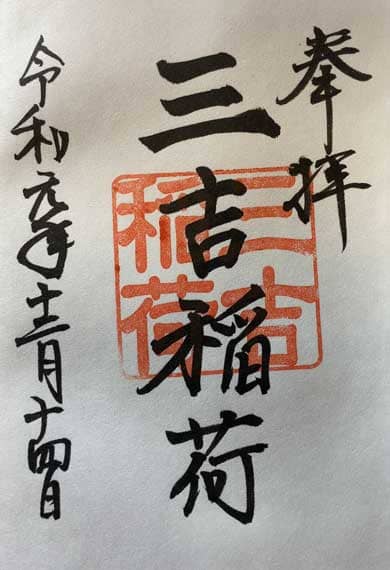 奉拝
三吉稲荷
三吉
稲荷
令和元年十二月十四日